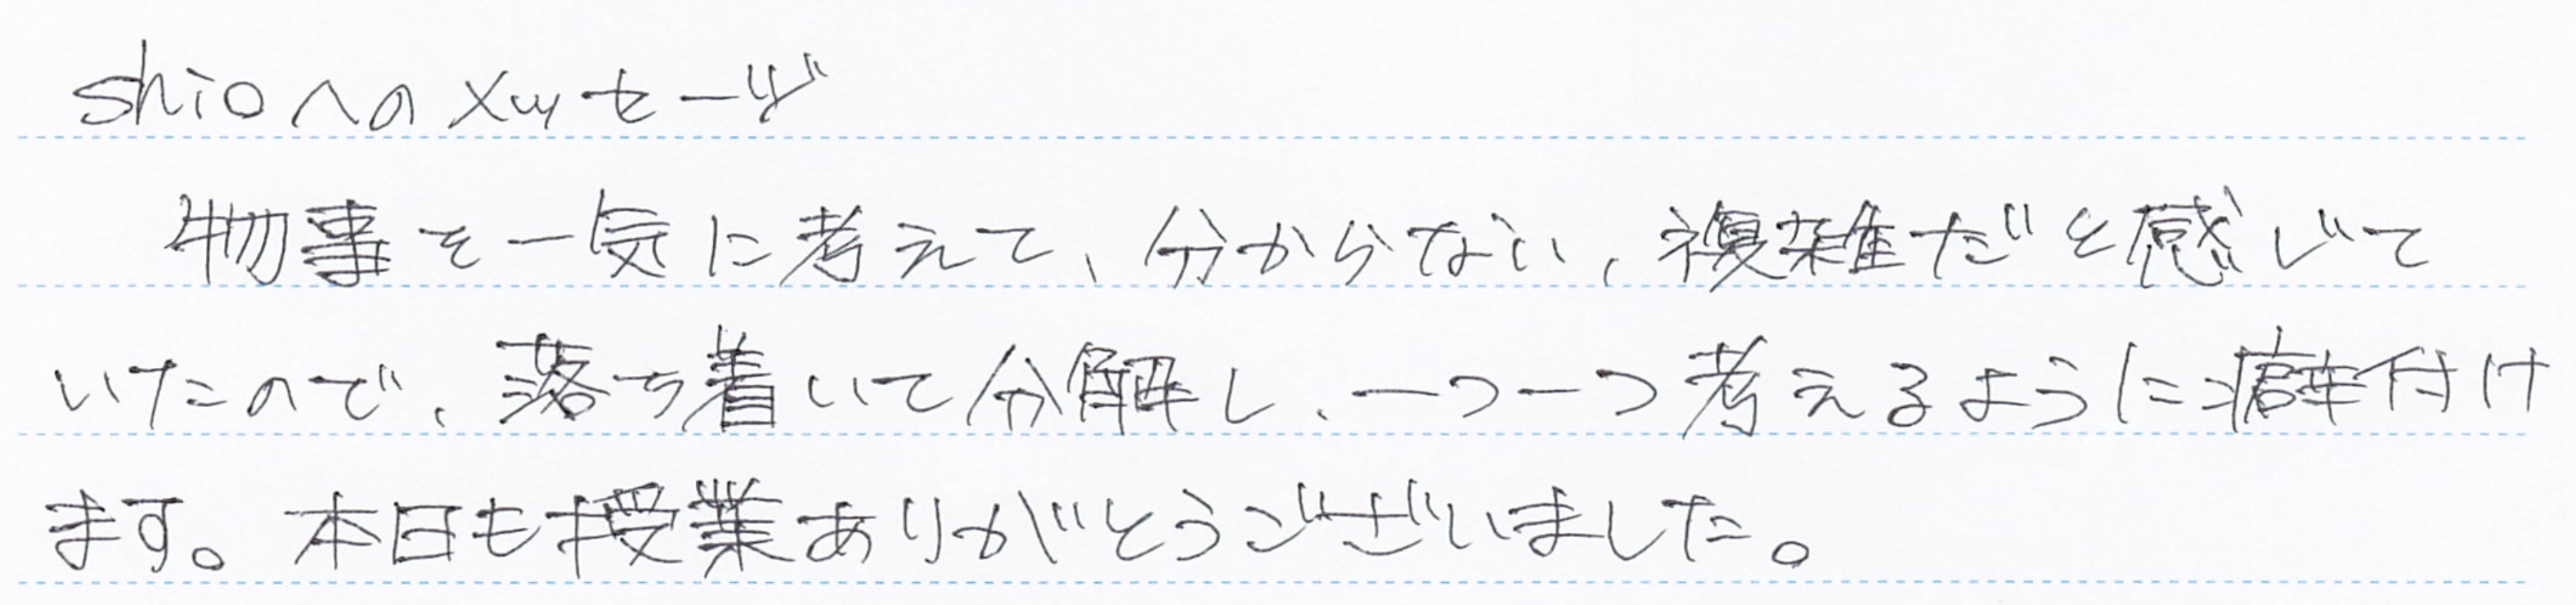 shioへのメッセージ
物事を一気に考えて、分からない、複雑だと感じて
いたので、落ち着いて分解し、一つ一つ考えるように癖付け
ます。本日も授業ありがとうございました。